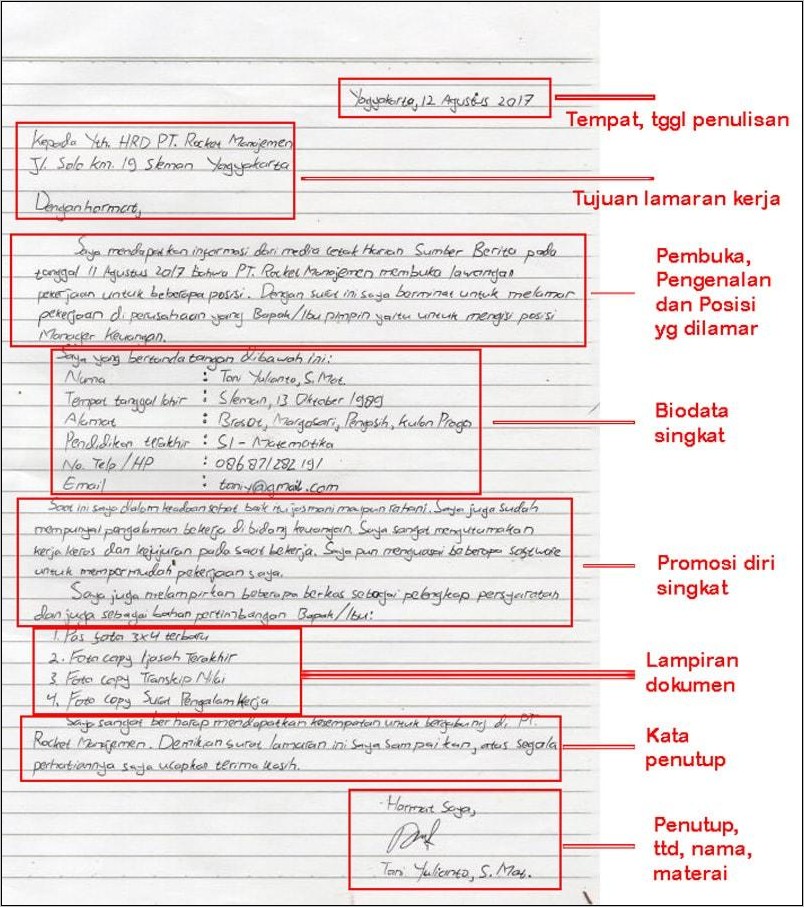 Yogyakarta, 12 Agustus 2017
Tempat, tggl penulisan
Kepada Yth. HRD PT. Rocket Manajemen
Jl. Solo km. 19 Sleman Yogyakarta
Dengan hormat,
Tujuan lamaran kerja
Saya mendapatkan informasi dari media cetak Harian Sumber Berita pada
tanggal 11 Agustus 2017 bahwa PT. Rocket Manajemen membuka lawangan
pekerjaan untuk beberapa posisi. Dengan surat ini saya berminat untuk melamar
pekerjaan di perusahaan yang Bapak/Ibu pimpin yaitu untuk mengisi posisi
Manager Keuangan.
Pembuka,
Pengenalan
dan Posisi
yg dilamar
Saya yang bertanda tangan dibawah ini:
Nama : Toni Yulianto, S. Mat.
Tempat tanggal lahir : Sleman, 13 Oktober 1989
Alamat : Brosot, Margosari, Pengasih, Kulon Progo
Pendidikan terakhir : S1 - Matematika
No. Telp/HP : 086871282191
Email : toniy@gmail.com
Biodata
singkat
Saat ini saya dalam keadaan sehat baik itu jasmani maupun rohani. Saya juga sudah
mempunyai pengalaman bekerja dibidang keuangan. Saya sangat mengutamakan
kerja keras dan kejujuran pada saat bekerja. Saya pun menguasai beberapa software
untuk mempermudah pekerjaan saya.
Saya juga melampirkan beberapa berkas sebagai pelengkap persyaratan
dan juga sebagai bahan pertimbangan Bapak/Ibu:
Promosi diri
singkat
1. Pas foto 3x4 terbaru
2. Foto copy Ijasah Terakhir
3. Foto copy Transkip Nilai
4. Foto copy Surat Pengalam Kerja
Lampiran
dokumen
Saya sangat berharap mendapatkan kesempatan untuk bergabung di PT.
Rocket Manajemen. Demikian surat lamaran ini saya sampaikan, atas segala
perhatiannya saya ucapkan terima kasih.
Kata
penutup
Hormat Saya,
Toni Yulianto, S. Mat.
Penutup,
ttd, nama,
materai